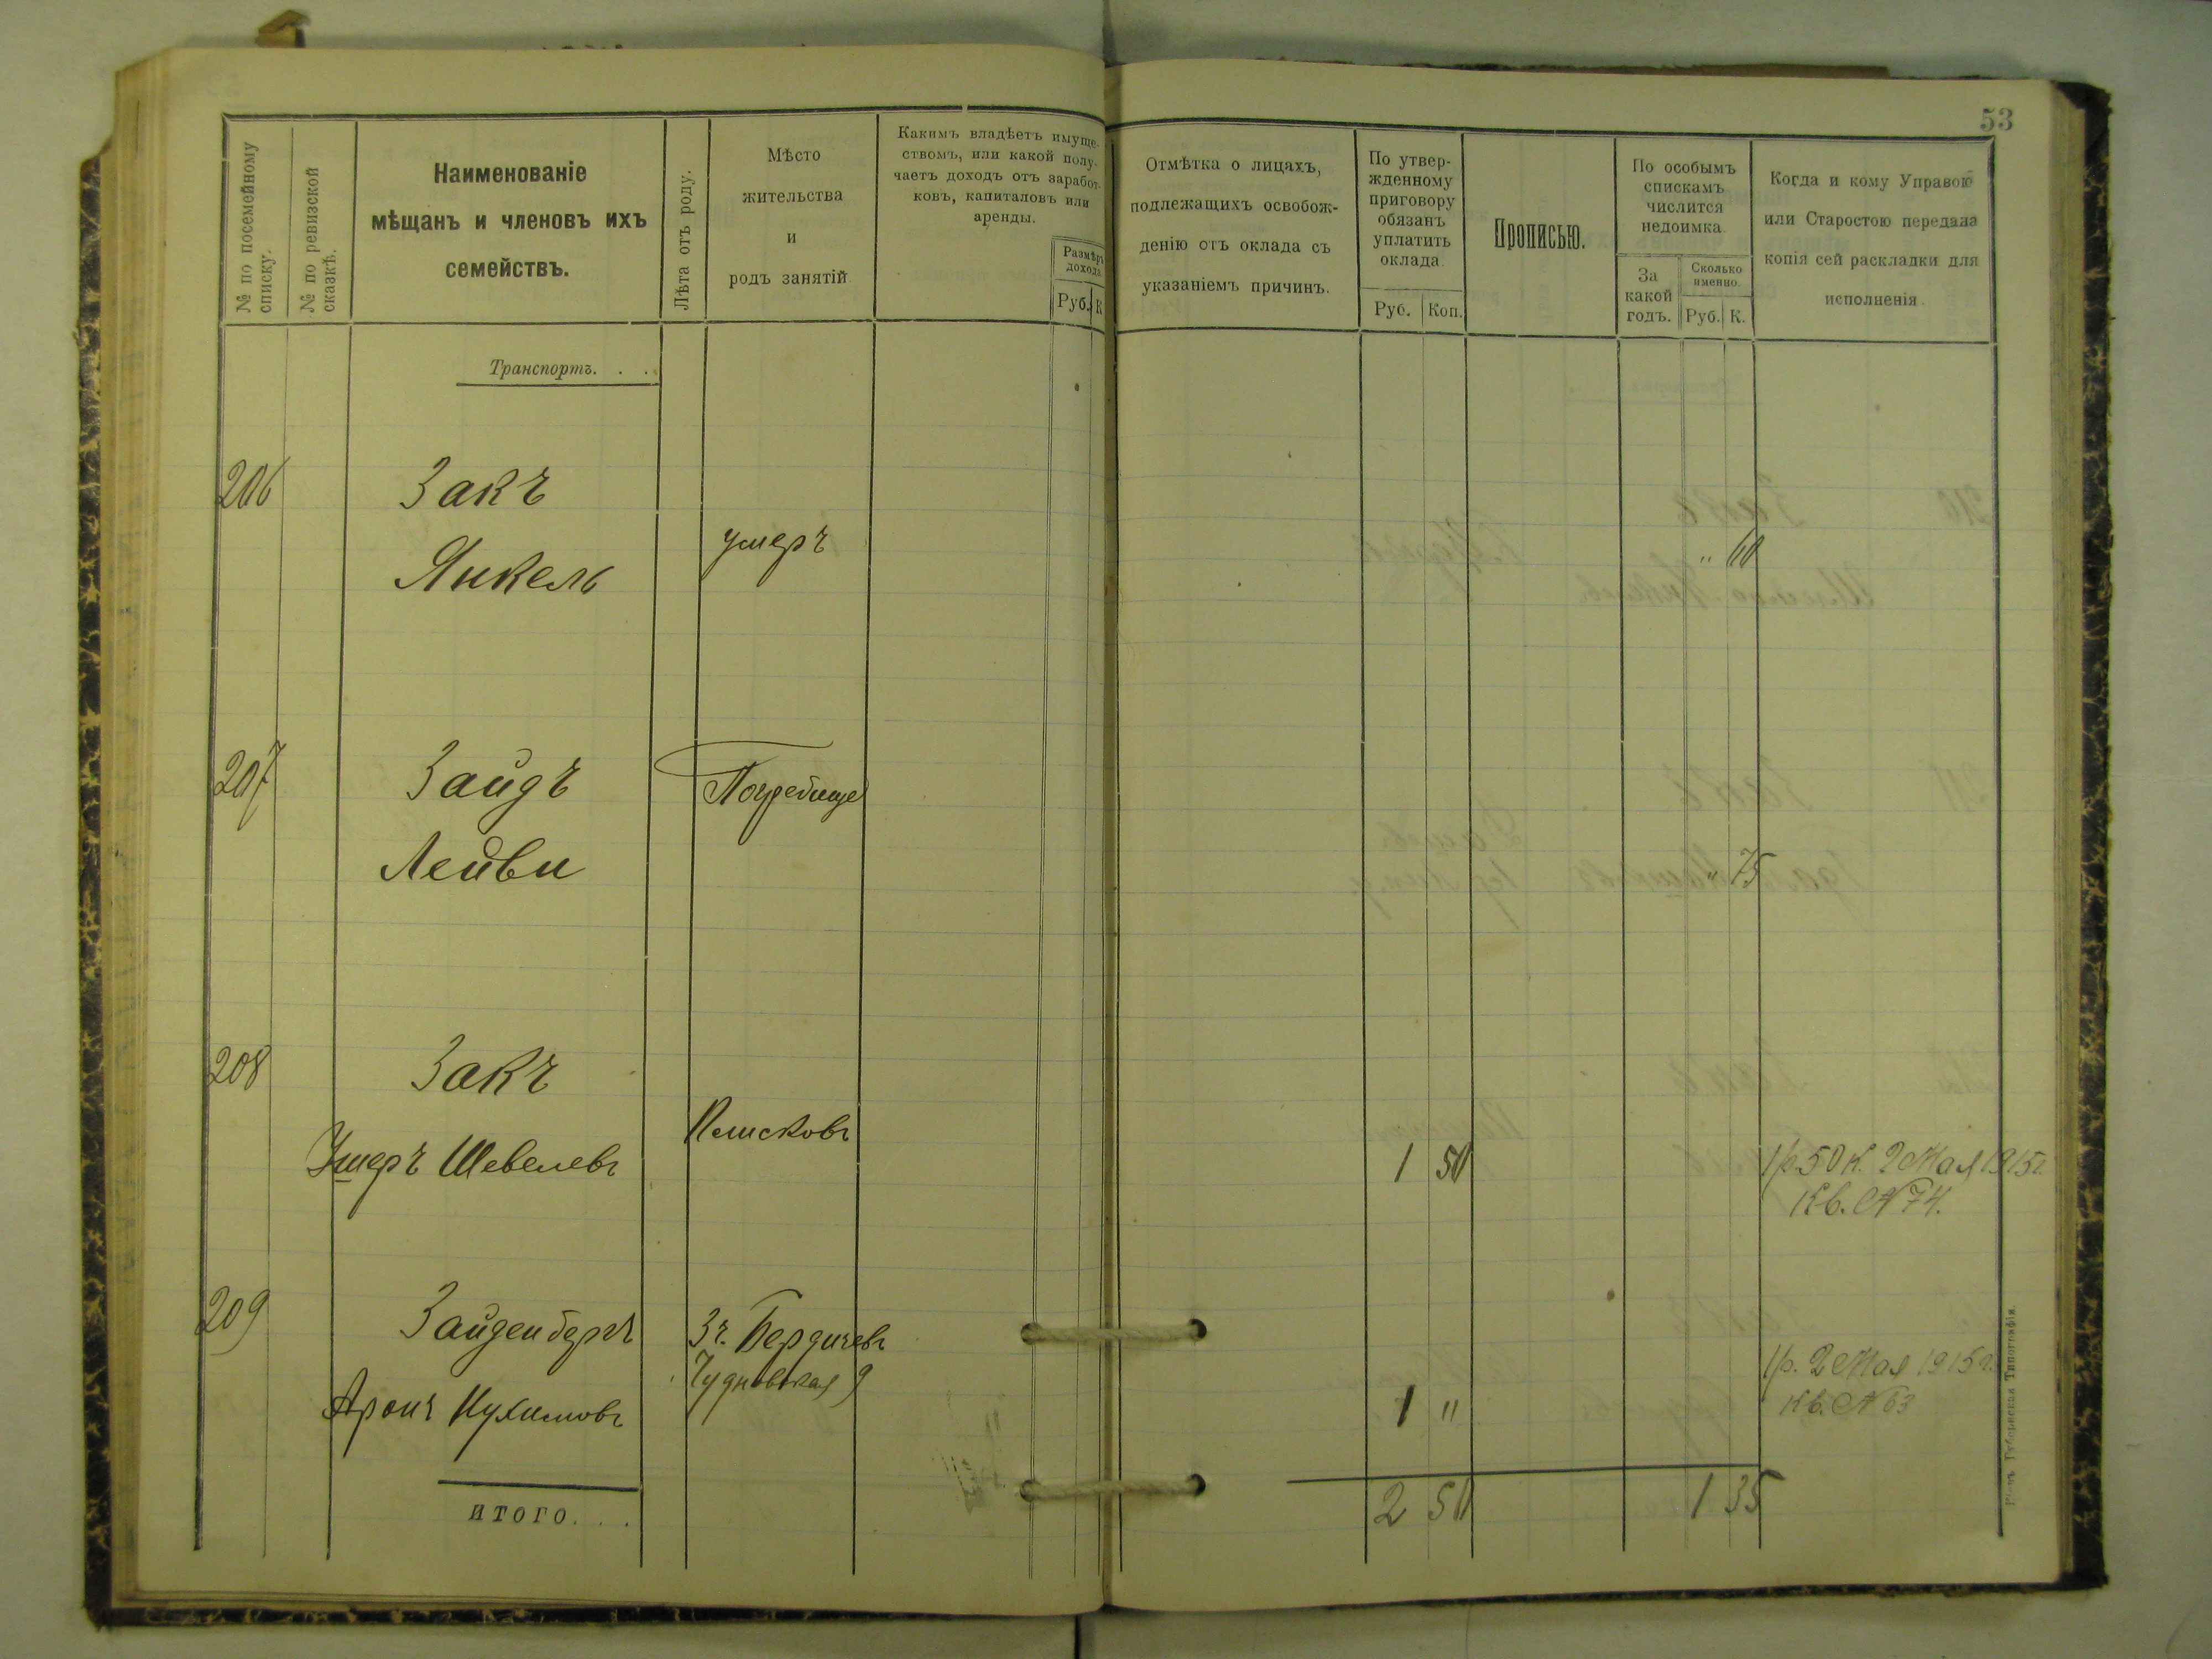 53
№ по посемейному списку.
№ по ревизской сказкѣ.
Наименованіе
мѣщанъ и членовъ ихъ
семействъ.
Лѣта отъ роду.
Мѣсто
жительства
и
родъ занятій
Какимъ владѣетъ имуще-
ствомъ, или какой полу-
чаетъ доходъ отъ заработ-
ковъ, капиталовъ или
аренды.
Размѣръ
дохода
Руб. К
Отмѣтка о лицахъ,
подлежащихъ освобож-
денію отъ оклада съ
указаніемъ причинъ.
По утвер-
жденному
приговору
обязанъ
уплатить
оклада
Руб. Коп.
Прописью.
По особымъ
спискамъ
числится
недоимка.
За
какой
годъ.
Сколько
именно
Руб. К.
Когда и кому Управою
или Старостою передана
копія сей раскладки для
исполненія
Транспортъ. . .
206 Закъ
Янкель умеръ " 60
207 Зайдъ Погребище
Лейви " 75
208 Закъ
Ушеръ Шевелевъ 1 50 1 р. 50 к. 2 Мая 1915 г.
Кв. № 74.
209 Зайденбергъ Бердичевъ
Чудновская 9 1 р. 2 Мая 1915 г.
Аронъ Нухимовъ 1 " Кв. № 63
итого. . . 2 50 1 35
Губернская Типографія.